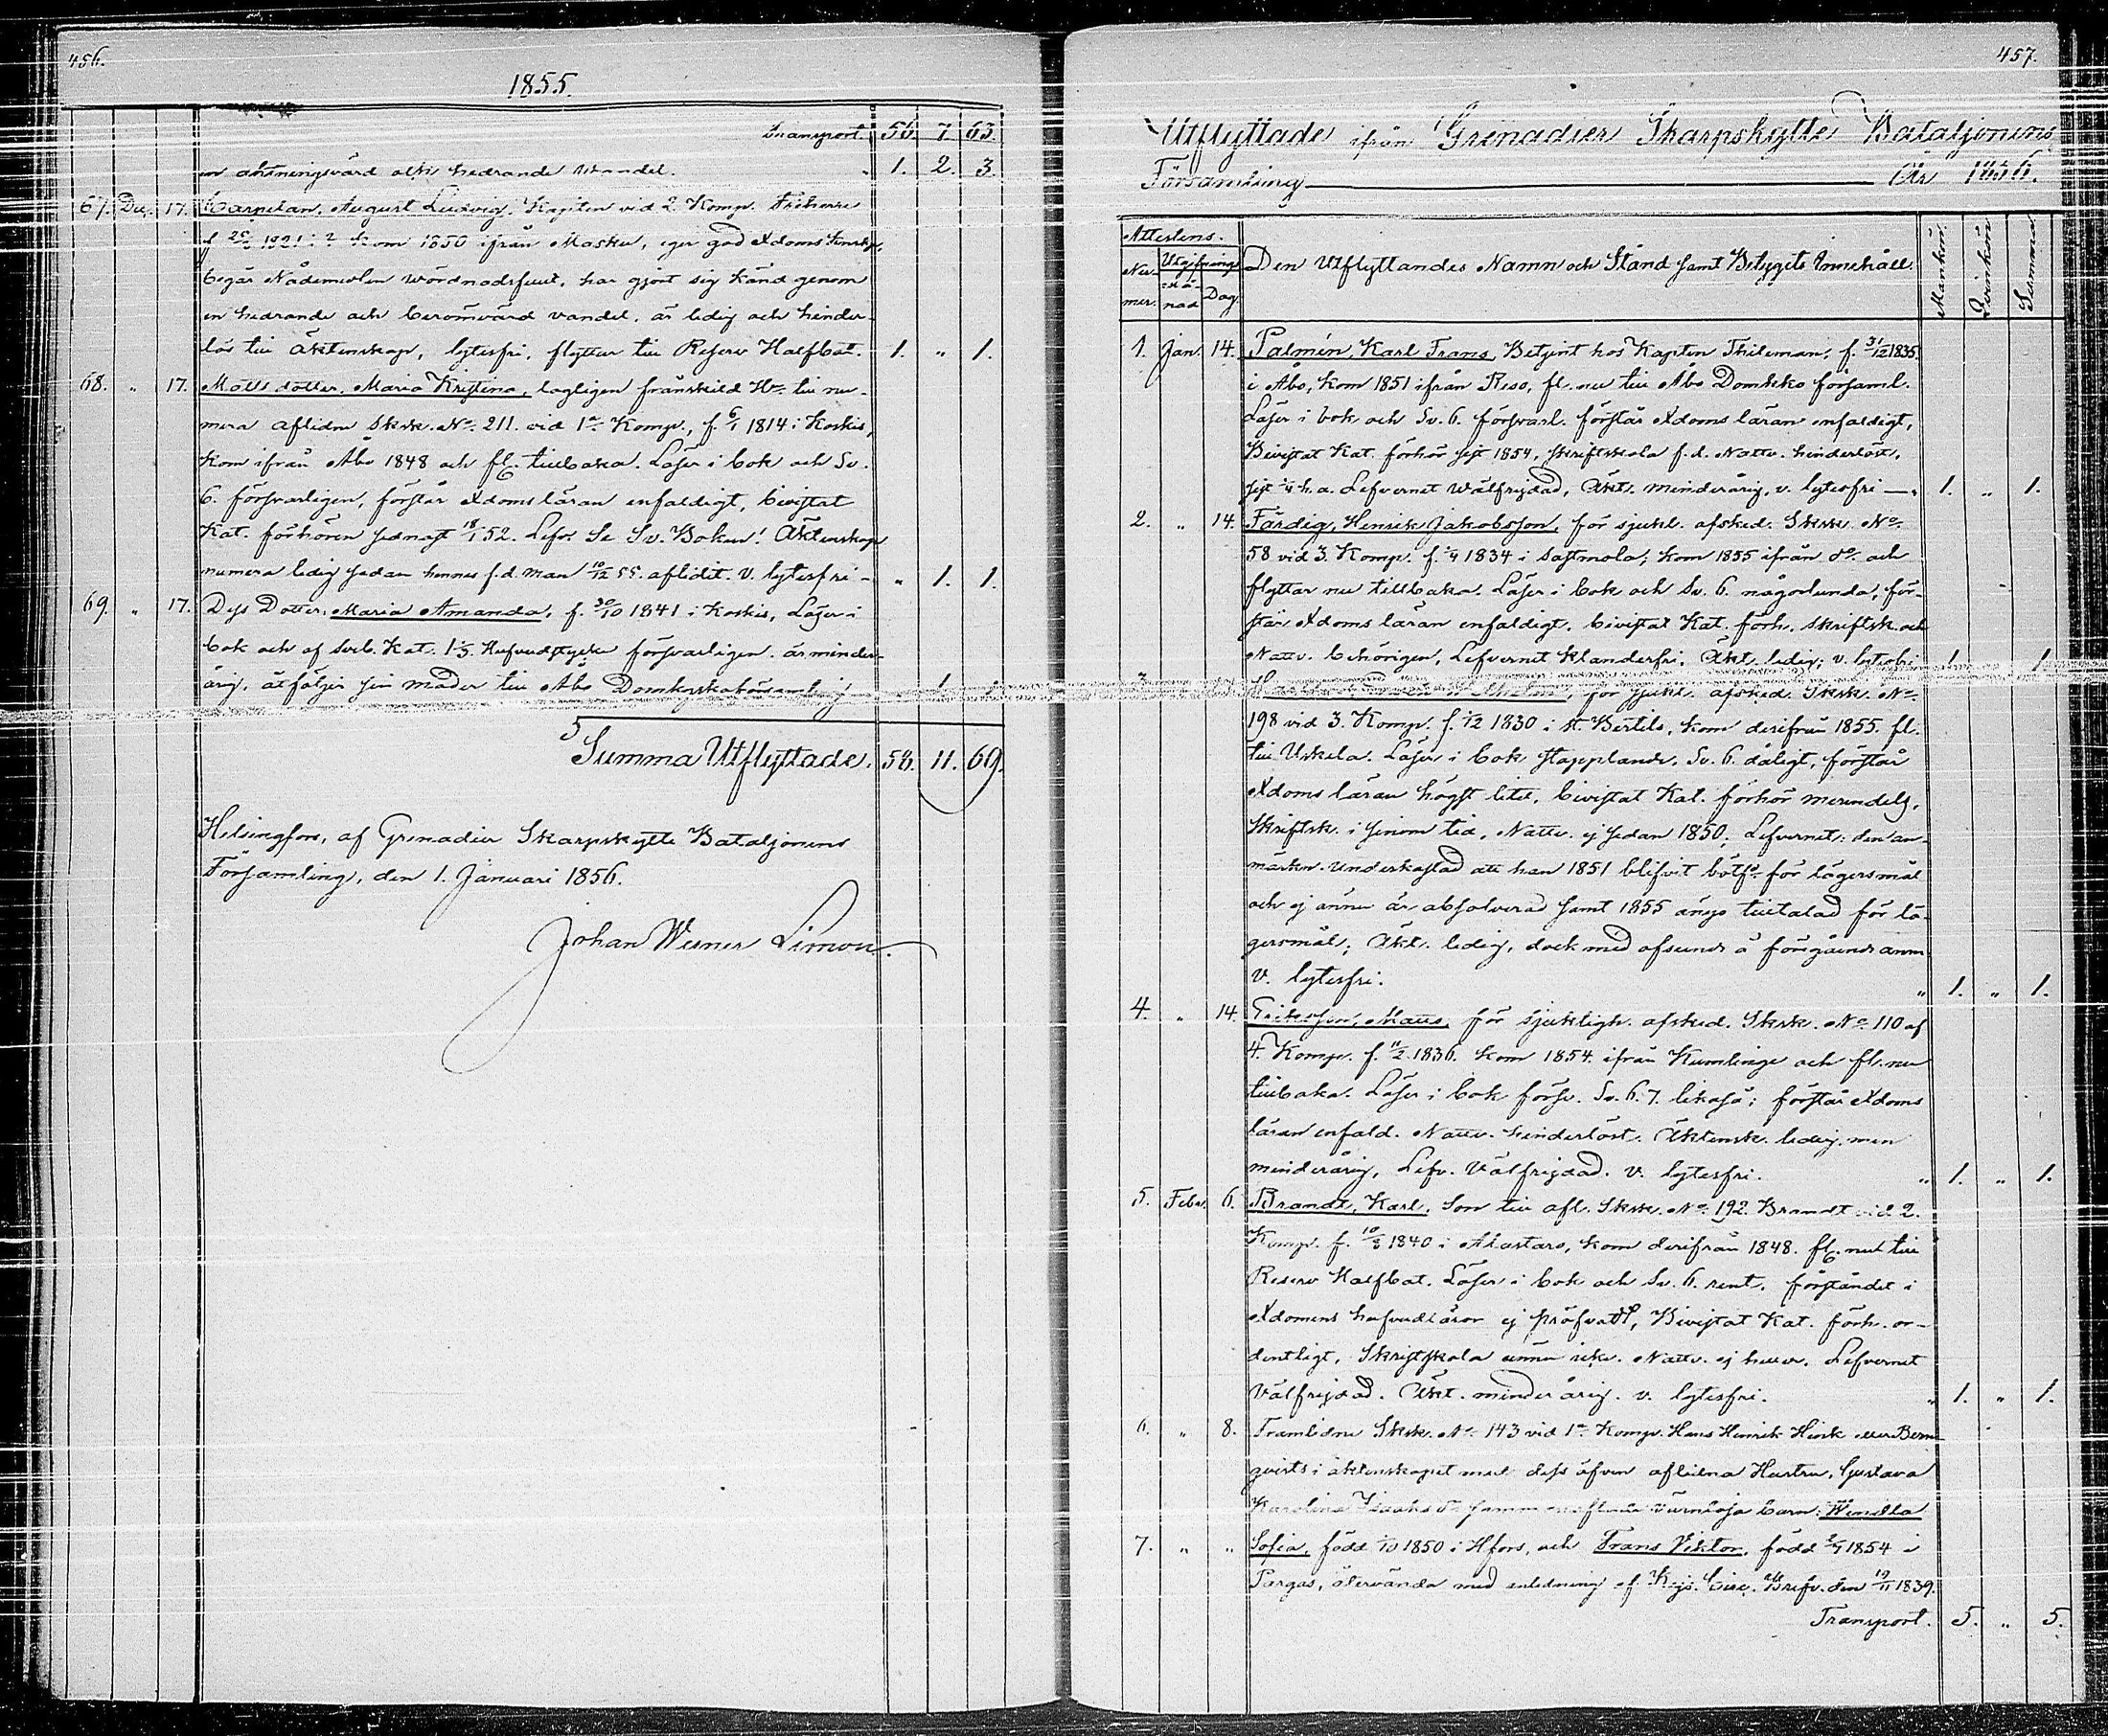 456.
1855.
Transport. 56. 7. 63.
en aktningsvärd och hedrande Vandel. " 1. 2. 3.
67. Dec. 17. Karpelan, August Ludvig, Kapiten vid 2. Komp. Friherre
f. 1821 i ? kom 1850 ifrån Masku, eger god Xdoms kunskp,
begår Nådemedlen wördnadsfullt, har gjort sig känd genom
en hedrande och berömvärd vandel, är ledig och hinder-
lös till Äktenskap, lytesfri, flyttar till Reserv Halfbat. 1. " 1.
68. " 17. Matts dotter, Maria Kristina, lagligen frånskild Hu till nu-
mera aflidne Sksk. No 211. vid 1a Komp., f. 6/1 1814 i Koskis,
kom ifrån Åbo 1848 och fl. tillbaka. Läser i bok och Sv.
6. försvarligen, förstår Xdomsläran enfaldigt, bivistat
Kat. förhören sednast 18/1 52. Lefv. Se Sv. Boken! Äktenskap
numera ledig sedan hennes f.d. man 10/12 55. aflidit. V. lytesfri - " 1. 1.
69. " 17. Dess Dotter, Maria Amanda, f. 30/10 1841 i Koskis, Läser i
bok och af Sveb. Kat. 1-5. Hufvudstycke försvarligen. är minder-
årig, åtföljer sin moder till Åbo Domkyrkoförsamling
Summa Utflyttade. 58. 11. 69.
Helsingfors, af Grenadier Skarpskytte Bataljonens
Församling, den 1. Januari 1856.
Johan Werner Limon.
457.
Utflyttade ifrån Grenadier Skarpskytte Bataljonens
Församling År 1856.
Attestens.
Nu- mer. Utgifnings Må- nad Dag. Den Utflyttandes Namn och Stånd samt Betygets Innehåll. Mankön. Qvinkön Summa
1. Jan. 14. Palmén, Karl Frans, Betjent hos Kapten Thileman, f. 31/12 1835.
i Åbo, kom 1851 ifrån Reso, fl. nu till Åbo Domkko församl.
Läser i bok och Sv. 6. försvarl. förstår Xdoms läran enfaldigt,
Bivistat Kat. förhör sist 1854, skriftskola f.d. Nattv. hinderlöst,
sist h.a. Lefvernet Wälfrejdad, Äkt. minderårig, v. lytesfri —" 1. " 1.
2. " 14. Färdig, Henrik Jakobsson, för sjukl. afsked. Skrsk. No
58 vid 3. Komp. f. 1834 i Sastmola, kom 1855 ifrån do och
flyttar nu tillbaka. Läser i bok och Sv. 6. någorlunda, för-
står Xdoms läran enfaldigt, bivistat Kat. förh. skriftsk. och
Nattv. behörigen, Lefvernet Klanderfri, Äkt. ledig, v. lytesfri 1. 1.
för sjukl. afsked. Skrsk. No
198 vid 3. Komp. f. 1830 i St. Bertils, kom derifrån 1855. fl.
till Uskela. Läser i bok stapplande, Sv. 6. dåligt, förstår
Xdoms läran högst litet, bivistat Kat. förhör merendels,
Skriftsk. i sinom tid, Nattv. ej sedan 1850, Lefvernet: den an-
märkn. underkastad att han 1851 blifvit bötfd för lägersmål
och ej ännu är absolverad samt 1855 ånyo tilltalad för lä-
gersmål; Äkt. ledig, dock med afseende å föregående anm.
V. lytesfri. " 1. " 1.
4. " 14. Eriksson, Matts, för sjukligh. afsked. Skrsk. No 110 af
4. Komp. f. 11/2 1836. kom 1854. ifrån Kumlinge och fl. nu
tillbaka. Läser i bok försv. Sv. 6. 7. likaså; förstår Xdoms
läran enfald. Nattv. hinderlöst. Äktensk. ledig, men
minderårig, Lefv. Välfrejdad. v. lytesfri. " 1. " 1.
5. Febr. 6. Brandt, Karl, Son till afl. Skrsk. No 192 Brandt vid 2.
Komp. f. 10/3 1840 i Alastaro, kom derifrån 1848. fl. nu till
Reserv Halfbat. Läser i bok och Sv. 6. rent, förståndet i
Xdomens hufvudläror ej pröfvadt, Bivistat Kat. förh. or-
dentligt, Skriftskola ännu icke. Nattv. ej heller. Lefvernet
Välfrejdad. Äkt. minderårig. v. lytesfri. " 1. " 1.
6. " 8. Framlidne Skrsk. No 143 vid 1a Komp. Hans Henrik Hirsk eller Bern-
qvists i äktenskapet med dess äfven aflidna Hustru, Gustava
Karolina Isaks dr sammanaflade värnlösa barn: Wendla
7. " " Sofia, född 1850 i Hfors, och Frans Viktor, född 1854 i
Pargas, återvända med anledning af Kejs. Circ. Brefv. den 19/11 1839.
Transport. 5. " 5.